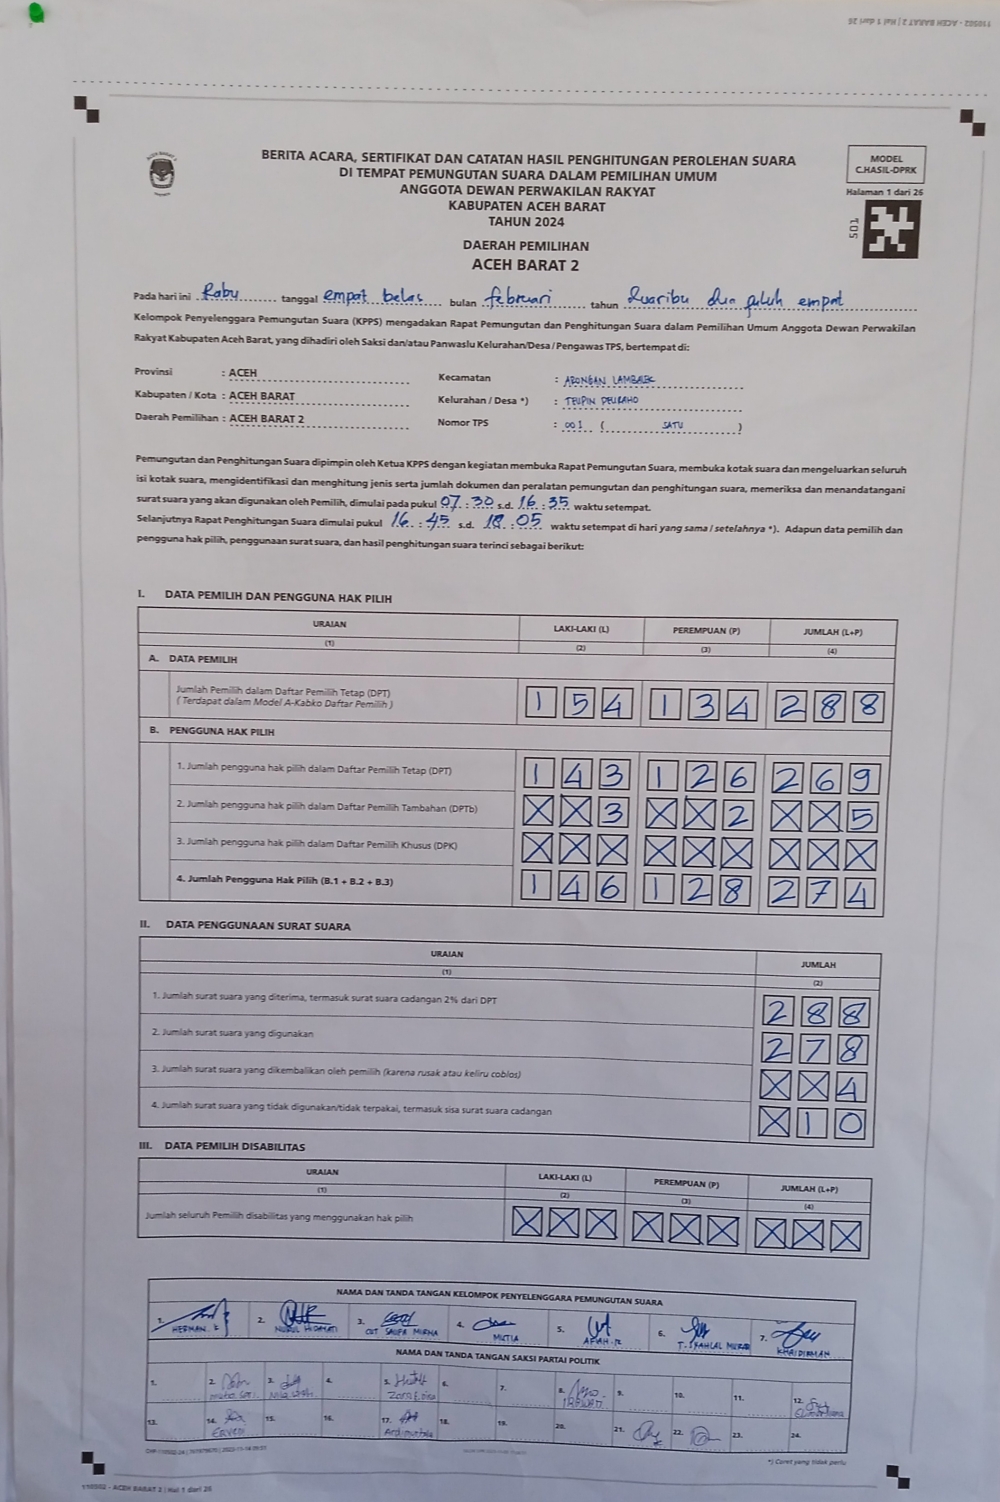 110502 - ACEH BARAT 2 | Hal 1 dari 26
BERITA ACARA, SERTIFIKAT DAN CATATAN HASIL PENGHITUNGAN PEROLEHAN SUARA
DI TEMPAT PEMUNGUTAN SUARA DALAM PEMILIHAN UMUM
ANGGOTA DEWAN PERWAKILAN RAKYAT
KABUPATEN ACEH BARAT
TAHUN 2024
DAERAH PEMILIHAN
ACEH BARAT 2
MODEL
C.HASIL-DPRK
Halaman 1 dari 26
501
Pada hari ini Rabu tanggal empat belas bulan februari tahun Duaribu dua puluh empat
Kelompok Penyelenggara Pemungutan Suara (KPPS) mengadakan Rapat Pemungutan dan Penghitungan Suara dalam Pemilihan Umum Anggota Dewan Perwakilan
Rakyat Kabupaten Aceh Barat, yang dihadiri oleh Saksi dan/atau Panwaslu Kelurahan/Desa / Pengawas TPS, bertempat di:
Provinsi : ACEH Kecamatan : ARONGAN LAMBALEK
Kabupaten / Kota : ACEH BARAT Kelurahan / Desa *) : TEUPIN PEURAHO
Daerah Pemilihan : ACEH BARAT 2 Nomor TPS : 001 ( SATU )
Pemungutan dan Penghitungan Suara dipimpin oleh Ketua KPPS dengan kegiatan membuka Rapat Pemungutan Suara, membuka kotak suara dan mengeluarkan seluruh
isi kotak suara, mengidentifikasi dan menghitung jenis serta jumlah dokumen dan peralatan pemungutan dan penghitungan suara, memeriksa dan menandatangani
surat suara yang akan digunakan oleh Pemilih, dimulai pada pukul 07 : 30 s.d. 16 : 35 waktu setempat.
Selanjutnya Rapat Penghitungan Suara dimulai pukul 16 : 45 s.d. 18 : 05 waktu setempat di hari yang sama / setelahnya *). Adapun data pemilih dan
pengguna hak pilih, penggunaan surat suara, dan hasil penghitungan suara terinci sebagai berikut:
I. DATA PEMILIH DAN PENGGUNA HAK PILIH
URAIAN LAKI-LAKI (L) PEREMPUAN (P) JUMLAH (L+P)
(1) (2) (3) (4)
A. DATA PEMILIH
Jumlah Pemilih dalam Daftar Pemilih Tetap (DPT) 1 5 4 1 3 4 2 8 8
( Terdapat dalam Model A-Kabko Daftar Pemilih )
B. PENGGUNA HAK PILIH
1. Jumlah pengguna hak pilih dalam Daftar Pemilih Tetap (DPT) 1 4 3 1 2 6 2 6 9
2. Jumlah pengguna hak pilih dalam Daftar Pemilih Tambahan (DPTb) X X 3 X X 2 X X 5
3. Jumlah pengguna hak pilih dalam Daftar Pemilih Khusus (DPK) X X X X X X X X X
4. Jumlah Pengguna Hak Pilih (B.1 + B.2 + B.3) 1 4 6 1 2 8 2 7 4
II. DATA PENGGUNAAN SURAT SUARA
URAIAN JUMLAH
(1) (2)
1. Jumlah surat suara yang diterima, termasuk surat suara cadangan 2% dari DPT 2 8 8
2. Jumlah surat suara yang digunakan 2 7 8
3. Jumlah surat suara yang dikembalikan oleh pemilih (karena rusak atau keliru coblos) X X 4
4. Jumlah surat suara yang tidak digunakan/tidak terpakai, termasuk sisa surat suara cadangan X 1 0
III. DATA PEMILIH DISABILITAS
URAIAN LAKI-LAKI (L) PEREMPUAN (P) JUMLAH (L+P)
(1) (2) (3) (4)
Jumlah seluruh Pemilih disabilitas yang menggunakan hak pilih X X X X X X X X X
NAMA DAN TANDA TANGAN KELOMPOK PENYELENGGARA PEMUNGUTAN SUARA
1. HERMAN. K 2. NURUL HIDAYATI 3. CUT SAUFA MIRNA 4. MUTIA 5. 6. 7. KHAIDIRMAN
NAMA DAN TANDA TANGAN SAKSI PARTAI POLITIK
1. 2. 3. 4. 5. 6. 7. 8. 9. 10. 11. 12.
13. 14. 15. 16. 17. 18. 19. 20. 21. 22. 23. 24.
*) Coret yang tidak perlu
110502 - ACEH BARAT 2 | Hal 1 dari 26